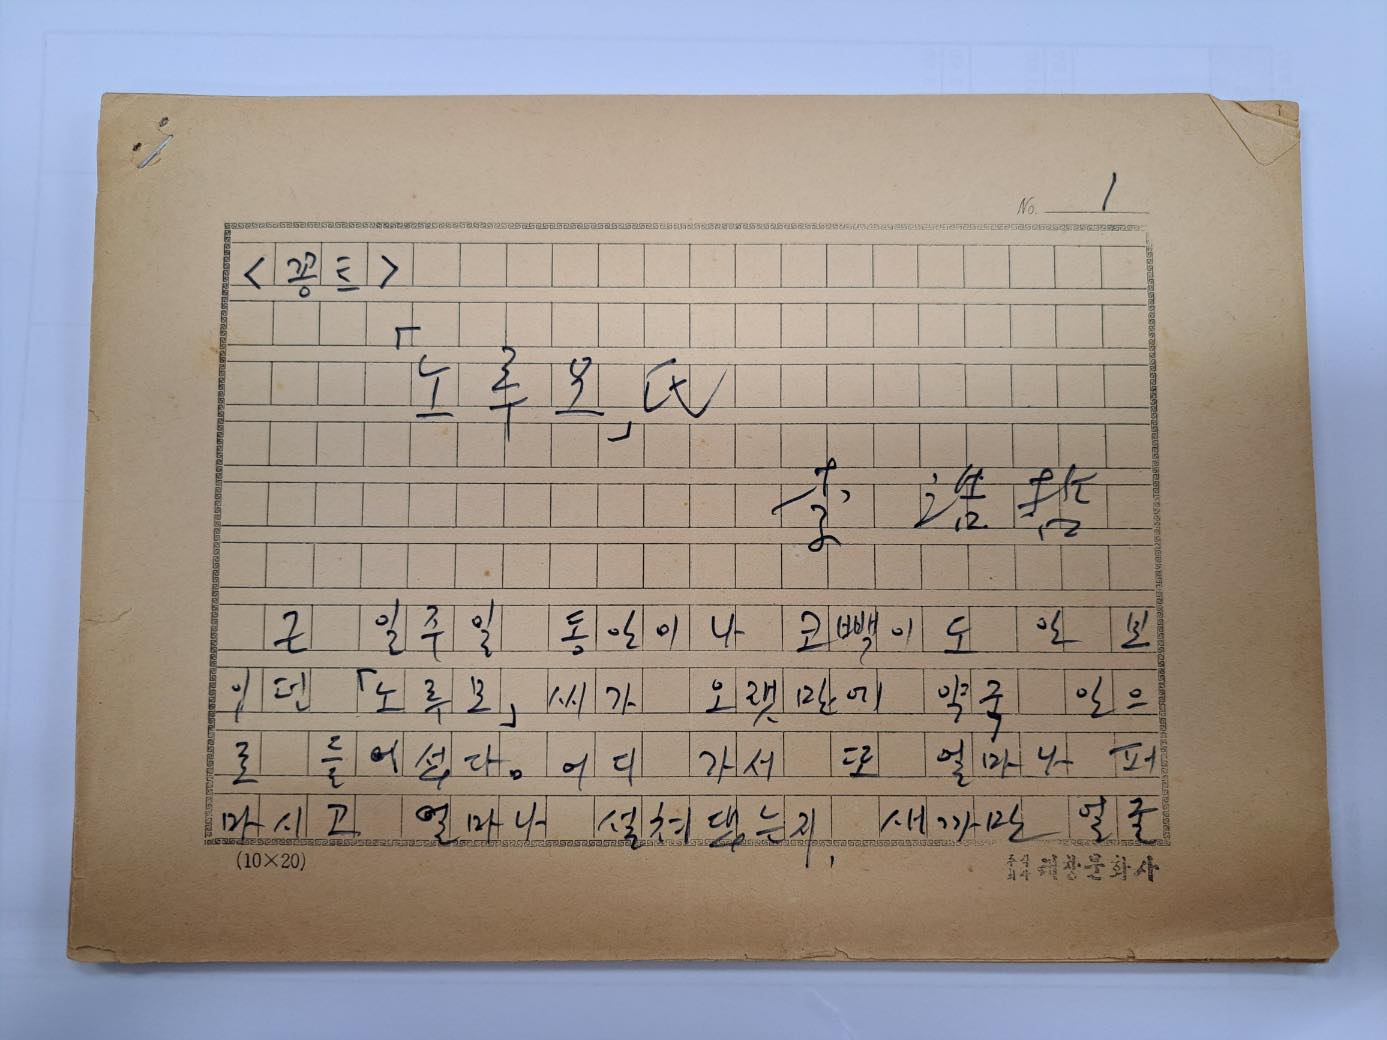 No. 1
<꽁트>
「노루모」氏
근 일주일 동안이나 코빼이도 안 보
이던 「노루모」씨가 오랫만에 약국 안으
로 들어섰다. 어디 가서 또 얼마나 퍼
마시고 얼마나 설쳐댔는지, 새까만 얼굴
(10×20)